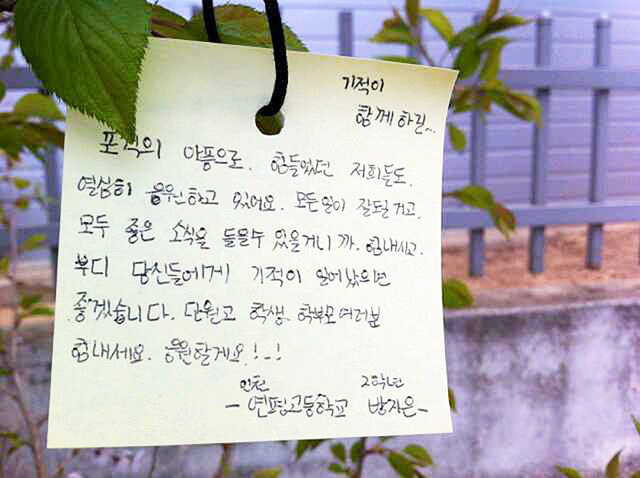 기적이
함께 하길...
포격의 아픔으로. 힘들었던 저희들도.
열심히 응원하고 있어요. 모든일이 잘될거고.
모두 좋은 소식을 들을수 있을거니 까. 힘내시고.
부디 당신들에게 기적이 일어났으면
좋겠습니다. 단원고 학생. 학부모여러분
힘내세요. 응원할게요!-!
인천 2학년
- 연평고등학교 방지은 -